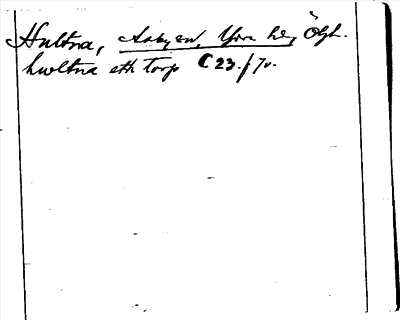 Hultna, Asby sn, Ydre hd, Ögl.
hwltna eth torp C 23. f 70.